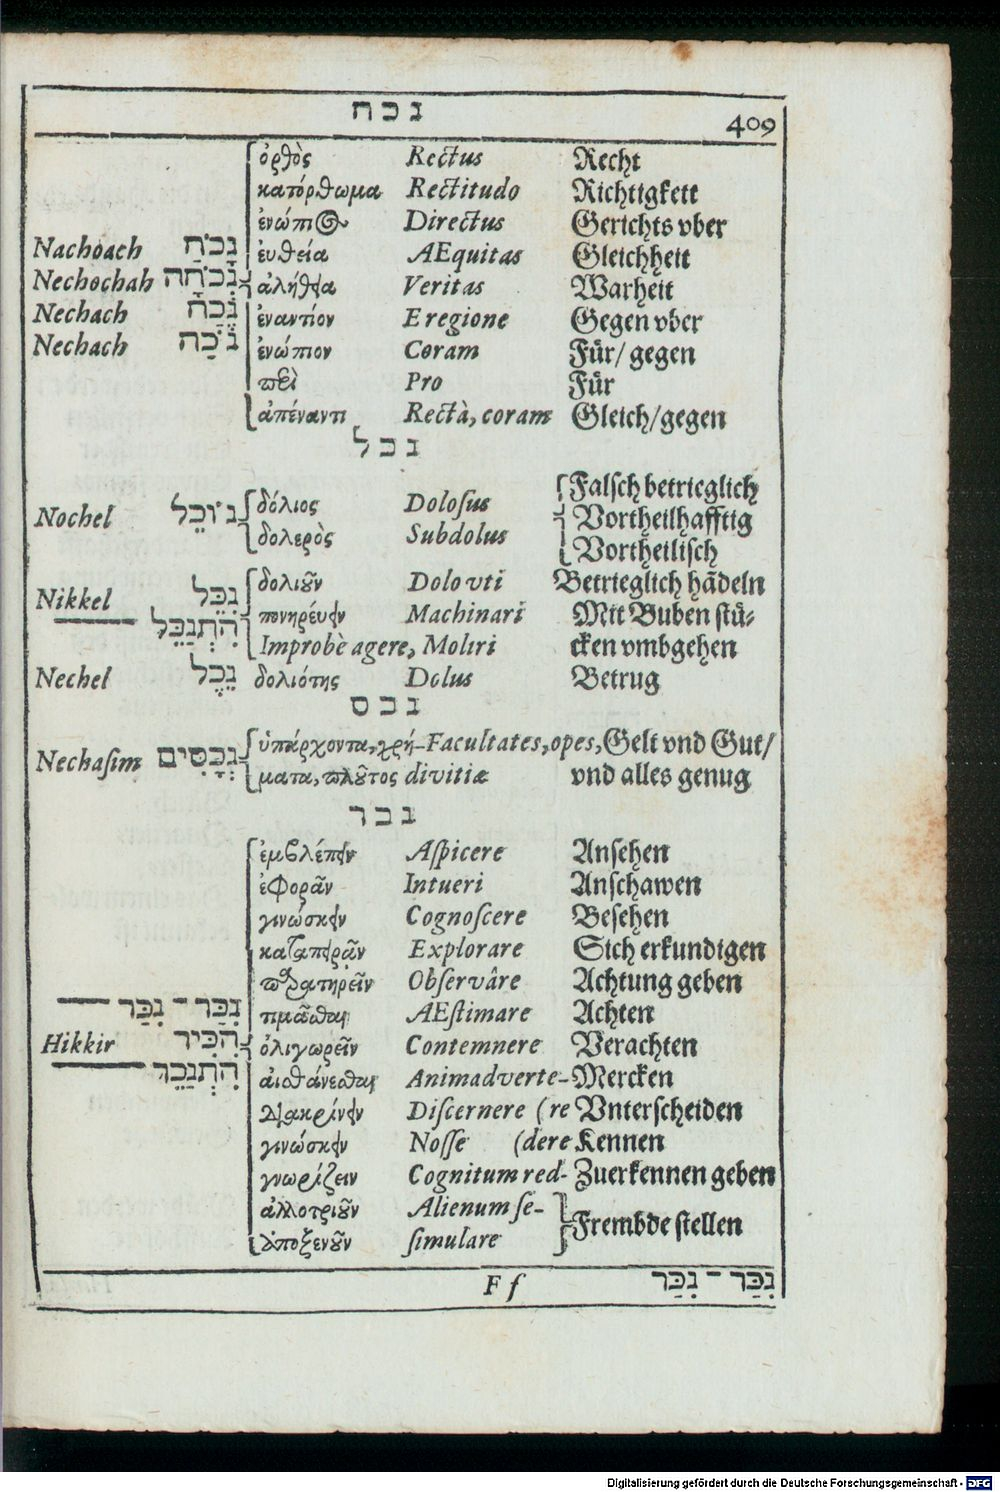 נכח
409
ὀρθὸς Rectus Recht
κατόρθωμα Rectitudo Richtigkeit
ἐνώπιος Directus Gerichts vber
Nachoach נָכֹחַ ἐυθεία AEquitas Gleichheit
Nechochah נְכֹחָה ἀλήθεια Veritas Warheit
Nechach נֶכַח ἐναντίον E regione Gegen vber
Nechach נֹכַח ἐνώπιον Coram Für/ gegen
περὶ Pro Für
ἀπέναντι Rectà, coram Gleich/gegen
נכל
Nochel נוֹכֵל δόλιος Dolosus Falsch betrieglich
δολερὸς Subdolus Vortheilhafftig
Vortheilisch
Nikkel נִכֵּל δολιοῦν Dolo vti Betrieglich hãdeln
הִתְנַכֵּל πονηρέυειν Machinari Mit Buben stü-
Improbè agere, Moliri cken vmbgehen
Nechel נֵכֶל δολιότης Dolus Betrug
נכס
Nechasim נְכָסִים ὑπάρχοντα, χρή- Facultates, opes, Gelt vnd Gut/
ματα, πλοῦτος divitiæ vnd alles genug
נכר
ἐμβλέπειν Aspicere Ansehen
ἐφορᾶν Intueri Anschawen
γινώσκειν Cognoscere Besehen
καταπειρᾶν Explorare Sich erkundigen
παρατηρεῖν Observâre Achtung geben
נִכַּר - נִכֵּר τιμᾶσθαι AEstimare Achten
Hikkir הִכִּיר ὀλιγωρεῖν Contemnere Verachten
הִתְנַכֵּר αἰσθάνεσθαι Animadverte- Mercken
διακρίνειν Discernere (re Vnterscheiden
γινώσκειν Nosse (dere Kennen
γνωρίζειν Cognitum red- Zuerkennen geben
ἀλλοτριοῦν Alienum se- Frembde stellen
ἀποξενοῦν simulare
F f נִכַּר - נִכֵּר
Digitalisierung gefördert durch die Deutsche Forschungsgemeinschaft - DFG